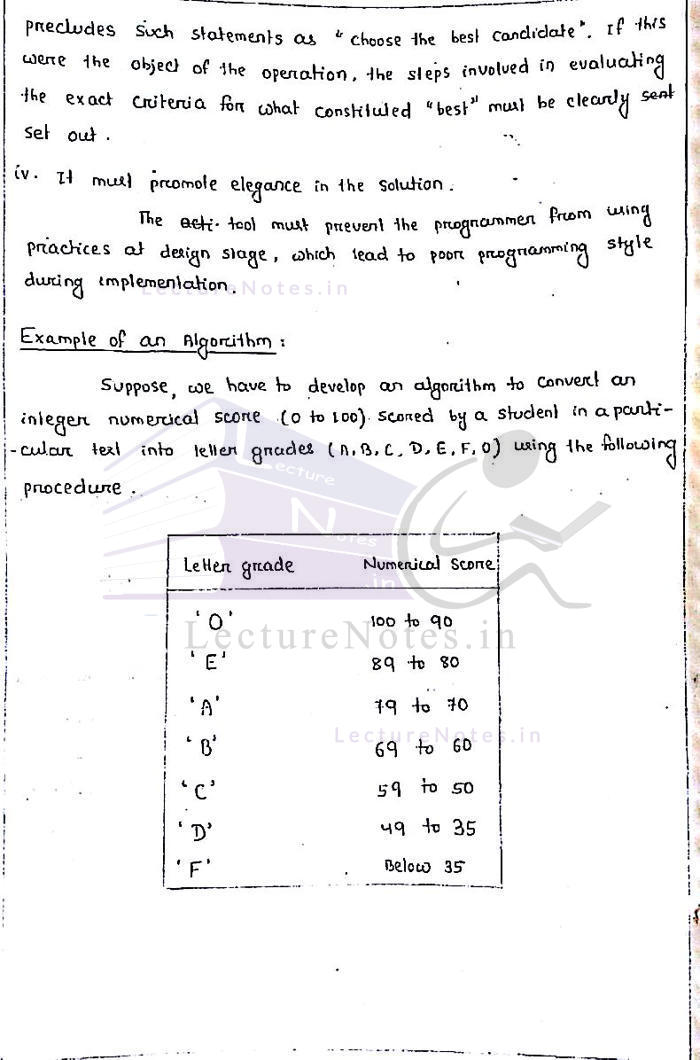 precludes such statements as "choose the best candidate". If this
were the object of the operation, the steps involved in evaluating
the exact criteria for what constituted "best" must be clearly sent
set out.
iv. It must promote elegance in the solution.
The acti- tool must prevent the programmer from using
practices at design stage, which lead to poor programming style
during implementation.
LectureNotes.in
Example of an Algorithm:
Suppose, we have to develop an algorithm to convert an
integer numerical score (0 to 100) scored by a student in a parti-
-cular test into letter grades (A, B, C, D, E, F, O) using the following
procedure.
Lecture
Notes
.in
Letter grade Numerical Score
'O' 100 to 90
LectureNotes.in
'E' 89 to 80
'A' 79 to 70
LectureNotes.in
'B' 69 to 60
'C' 59 to 50
'D' 49 to 35
'F' Below 35